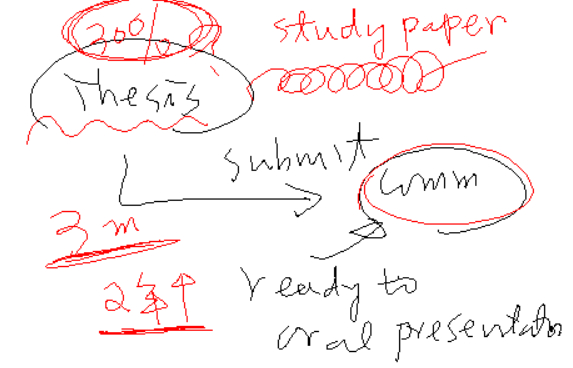 20%
study paper
Thesis
submit
comm
3 m
2年
ready to
oral presentation